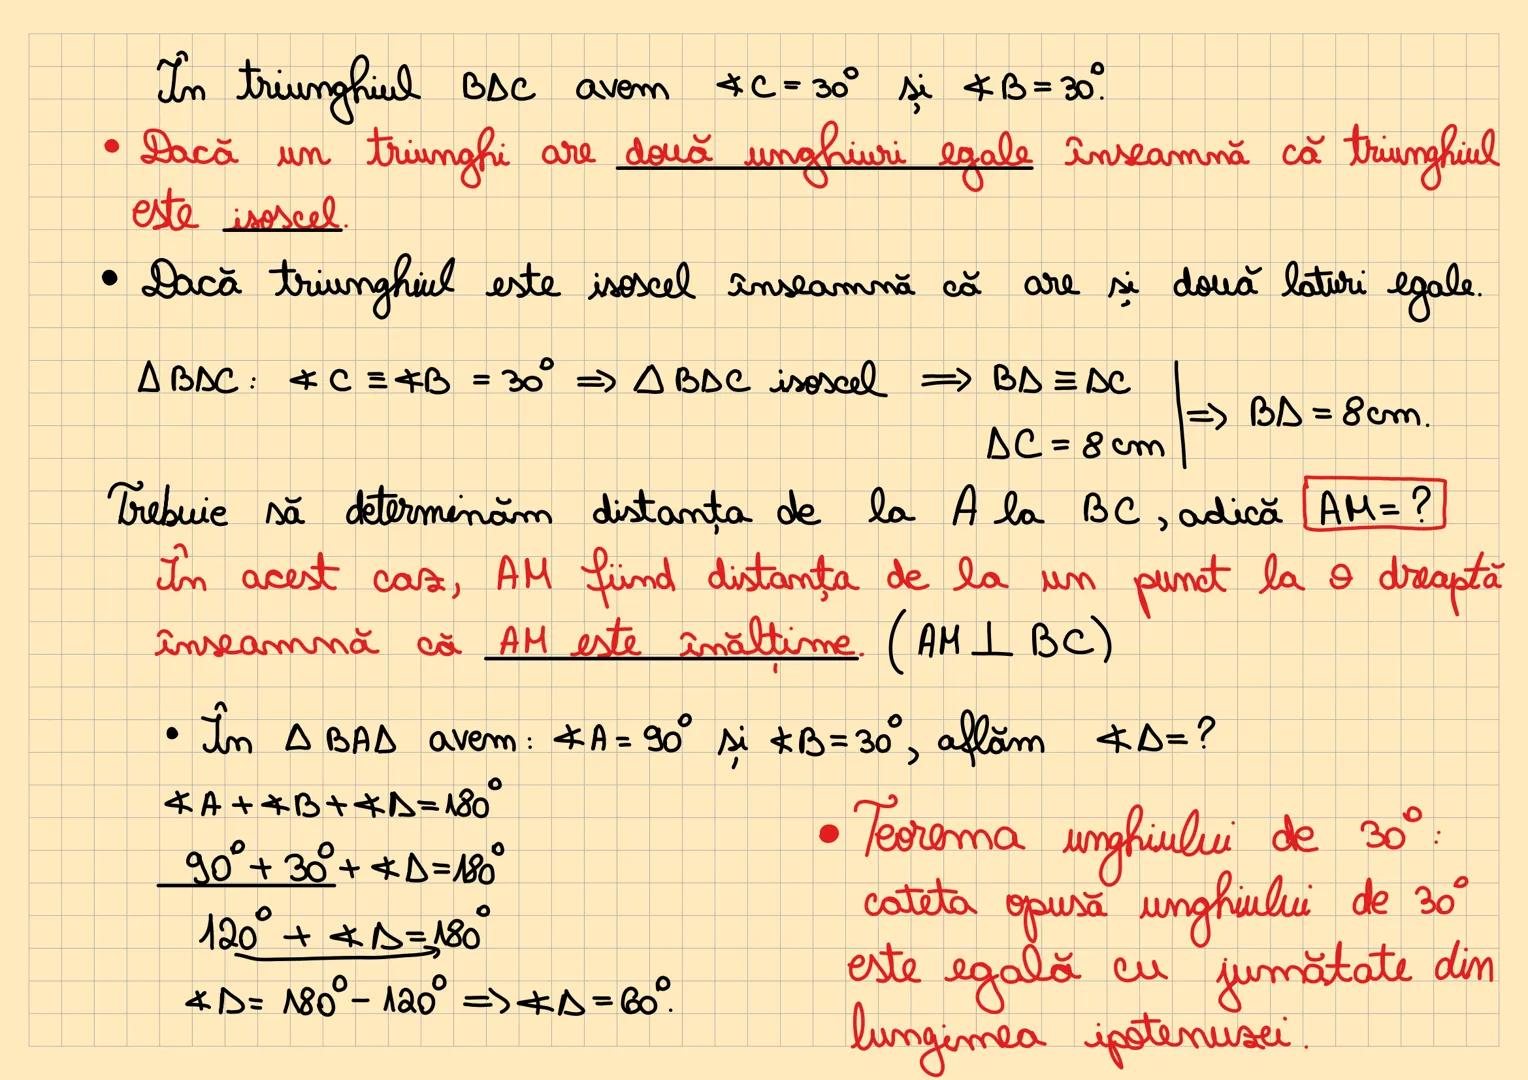 În triunghiul BDC avem ∢C = 30° și ∢B = 30°.
• Dacă un triunghi are două unghiuri egale înseamnă că triunghiul
este isoscel.
• Dacă triunghiul este isoscel înseamnă că are și două laturi egale.
Δ BDC: ∢C ≡ ∢B = 30° => Δ BDC isoscel => BD ≡ DC
DC = 8 cm
=> BD = 8 cm.
Trebuie să determinăm distanța de la A la BC, adică AM = ?
În acest caz, AM fiind distanța de la un punct la o dreaptă
înseamnă că AM este înălțime. (AM ⊥ BC)
• În Δ BAD avem: ∢A = 90° și ∢B = 30°, aflăm ∢D = ?
∢A + ∢B + ∢D = 180°
90° + 30° + ∢D = 180°
120° + ∢D = 180°
∢D = 180° - 120° => ∢D = 60°.
• Teorema unghiului de 30°:
cateta opusă unghiului de 30°
este egală cu jumătate din
lungimea ipotenuzei.